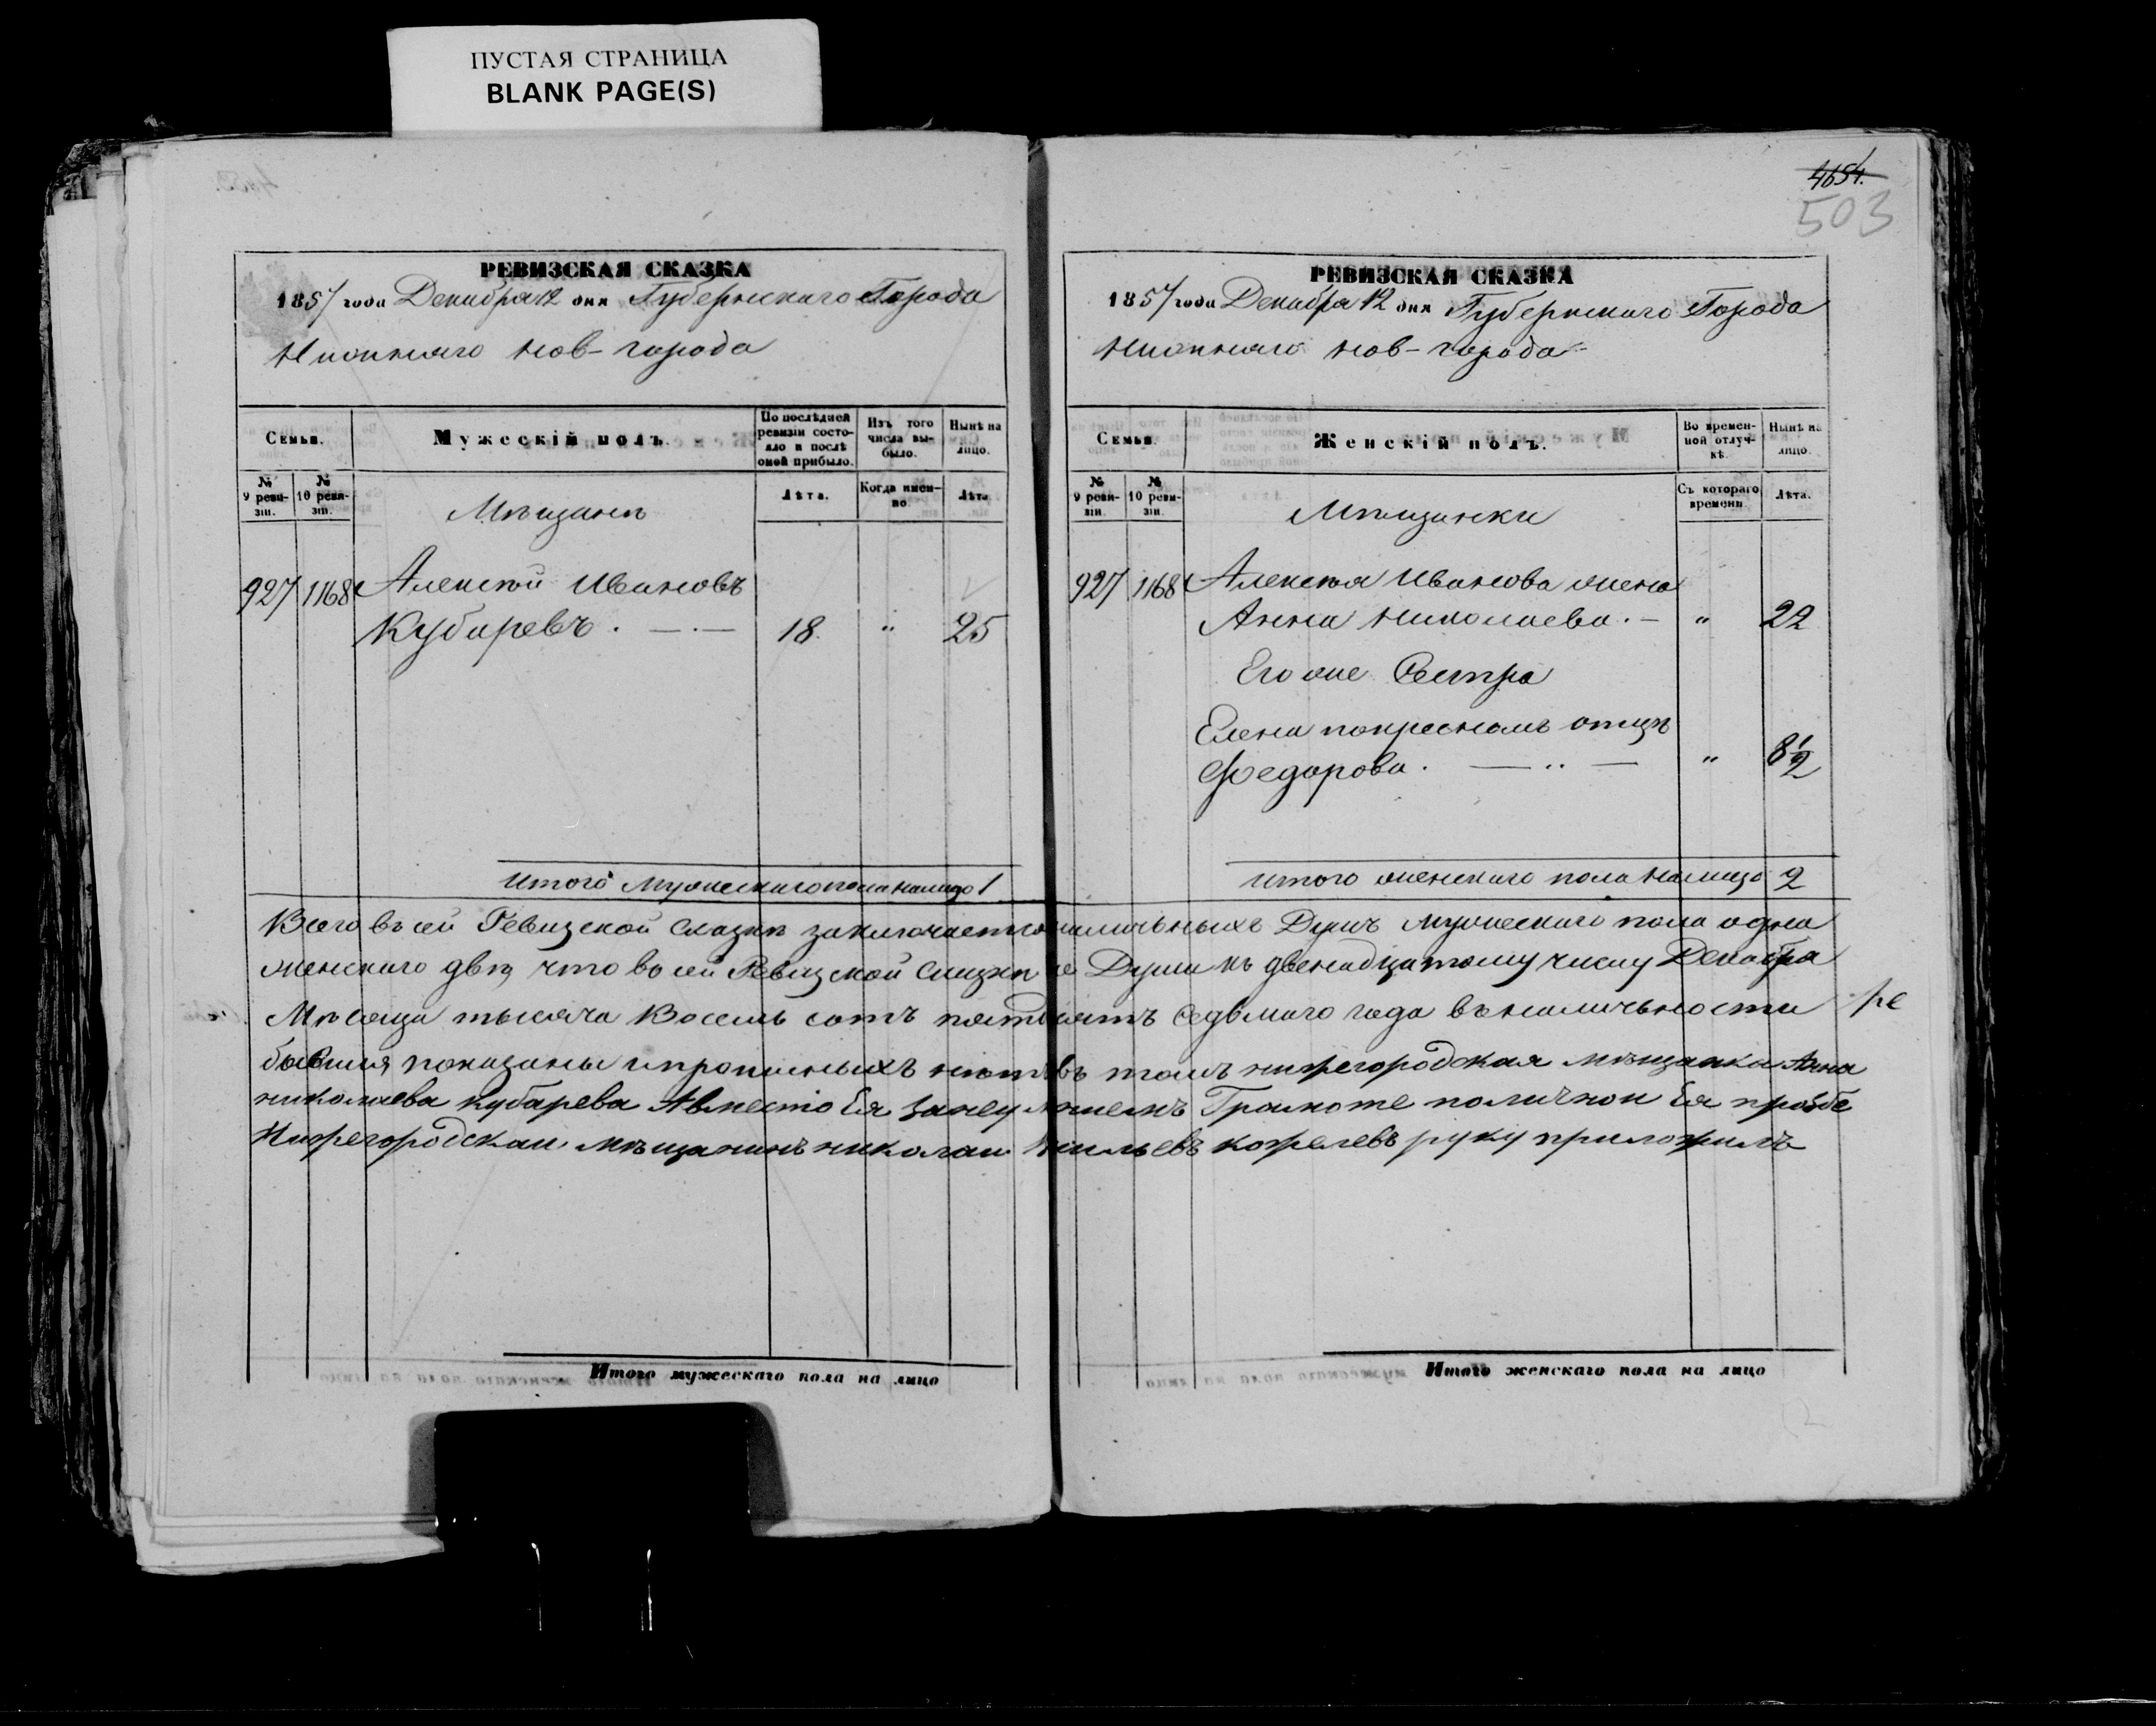 ПУСТАЯ СТРАНИЦА
BLANK PAGE(S)
РЕВИЗСКАЯ СКАЗКА
1857 года Декабря 12 дня Губернскаго Города
Нижняго Нов-города
Семьи.
Мужескій полъ.
По послѣдней ревизіи состояло и послѣ оной прибыло.
Изъ того числа выбыло.
Нынѣ на лицо.
№ 9 ревизіи.
№ 10 ревизіи.
Мѣщанъ
Лѣта.
Когда именно.
Лѣта
927 1168 Алексѣй Ивановъ
Кубаревъ . — . — 18. " 25
Итого Мужескаго пола налицо 1
4654.
503
РЕВИЗСКАЯ СКАЗКА
1857 года Декабря 12 дня Губернскаго Города
Нижняго Нов-города
Семьи.
Женскій полъ.
Во временной отлучкѣ.
Нынѣ на лицо.
№ 9 ревизіи.
№ 10 ревизіи.
Мѣщанки
Съ котораго времени.
Лѣта.
927 1168 Алексѣя Иванова жена
Анна Николаева . — " 22
Его же Сестра
Елена покресномъ отцѣ
Федорова . — .. — " 8½
Итого женскаго пола налицо 2
Всего въ сей Ревизской Сказкѣ заключается наличьныхъ Душъ Мужескаго пола одна
женскаго двѣ, что во сей Ревизской Сказкѣ все Души къ двенадцатому числу Декабря
Мѣсяца тысяча Восемь сотъ пятдесятъ седьмаго года въ наличьности
бывшия показаны и прописныхъ нетъ въ томъ нижегородская мѣщанка Анна
николаева кубарева Авместо Ея Занеуменіемъ Грамоте поличной Ея прозбе
Нижегородскаи мѣщанинъ николаи кожелевъ руку приложилъ
Итого мужескаго пола на лицо
Итого женскаго пола на лицо